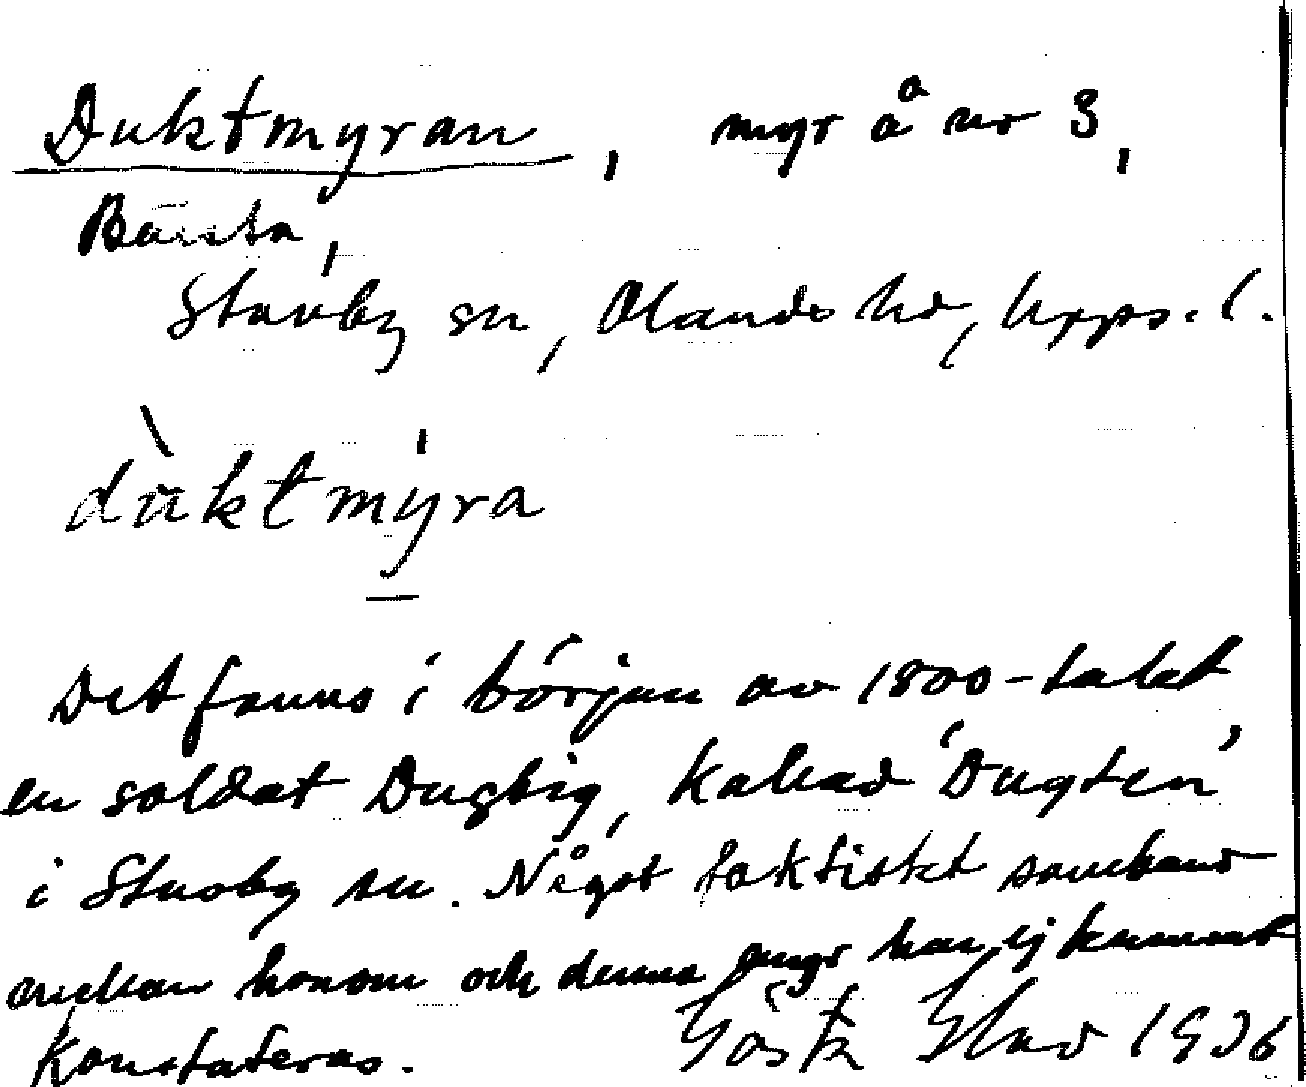 Duktmyran, myr å nr 3,
Bärsta,
Stavby sn, Olands hd, Upps. l.
dùktmy̍ra
Det fanns i början av 1800-talet
en soldat Dugtig, kallad 'Dugten'
i Stavby sn. Något faktiskt samband
mellan honom och denna myr har ej kunnat
konstateras. Gösta Elav 1936